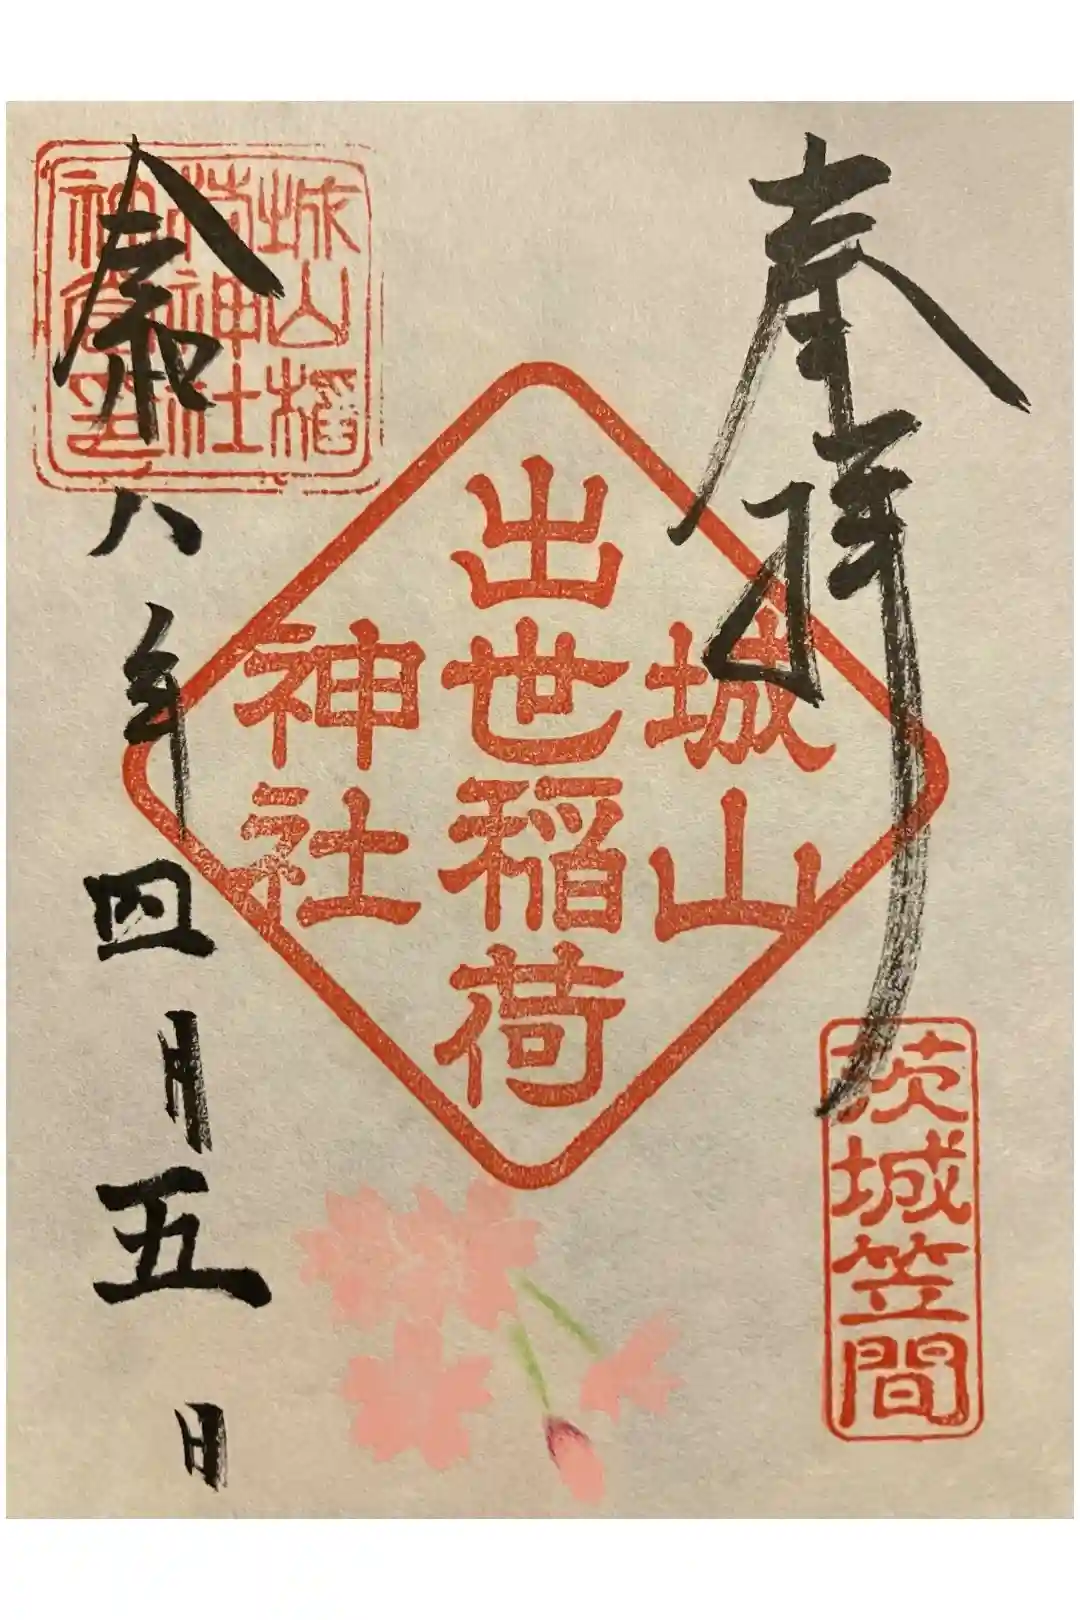 奉拝
茨城笠間
城山
出世稲荷
神社
城山稲
荷神社
令和八年四月五日